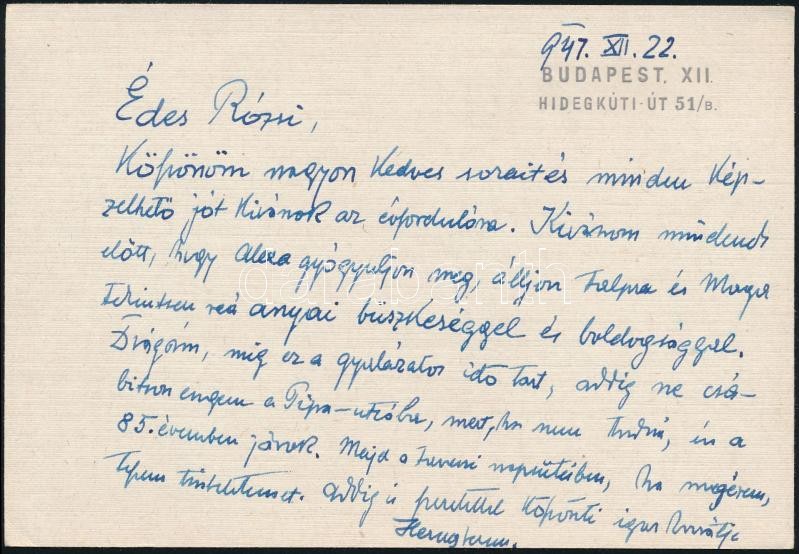 947. XII. 22.
BUDAPEST. XII.
HIDEGKÚTI-ÚT 51/B.
Édes Rózsi,
Köszönöm nagyon kedves sorait és minden kép-
zelhető jót kivánok az évfordulóra. Kivánom mindenek
előtt, hogy Alexa gyógyuljon meg, álljon talpra és Maga
tekintsen reá anyai büszkeséggel és boldogsággal.
Drágám, mig ez a gyalázatos idő tart, addig ne csá-
bitson engem a utcába, mert, ha nem tudná, én a
85. évemben járok. Majd a tavaszi napsütésben, ha megérem,
teszem tiszteletemet. Addig is szeretettel köszönti igaz barátja